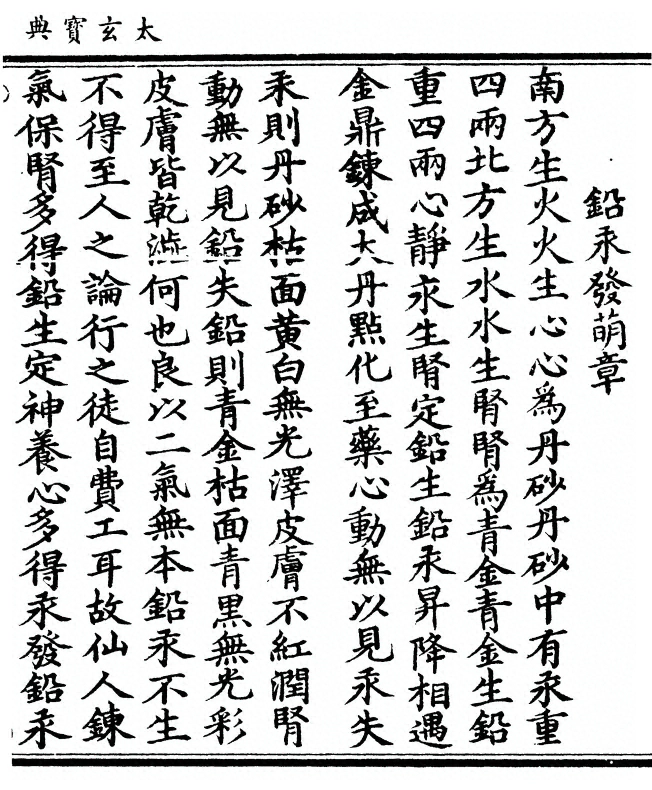 太玄寶典
鉛汞發萌章
南方生火火生心心爲丹砂丹砂中有汞重
四兩北方生水水生腎腎爲青金青金生鉛
重四兩心靜汞生腎定鉛生鉛汞昇降相遇
金鼎鍊成大丹點化至藥心動無以見汞失
汞則丹砂枯面黄白無光澤皮膚不紅潤腎
動無以見鉛失鉛則青金枯面青黑無光彩
皮膚皆乾澁何也良以二氣無本鉛汞不生
不得至人之論行之徒自費工耳故仙人鍊
氣保腎多得鉛生定神養心多得汞發鉛汞